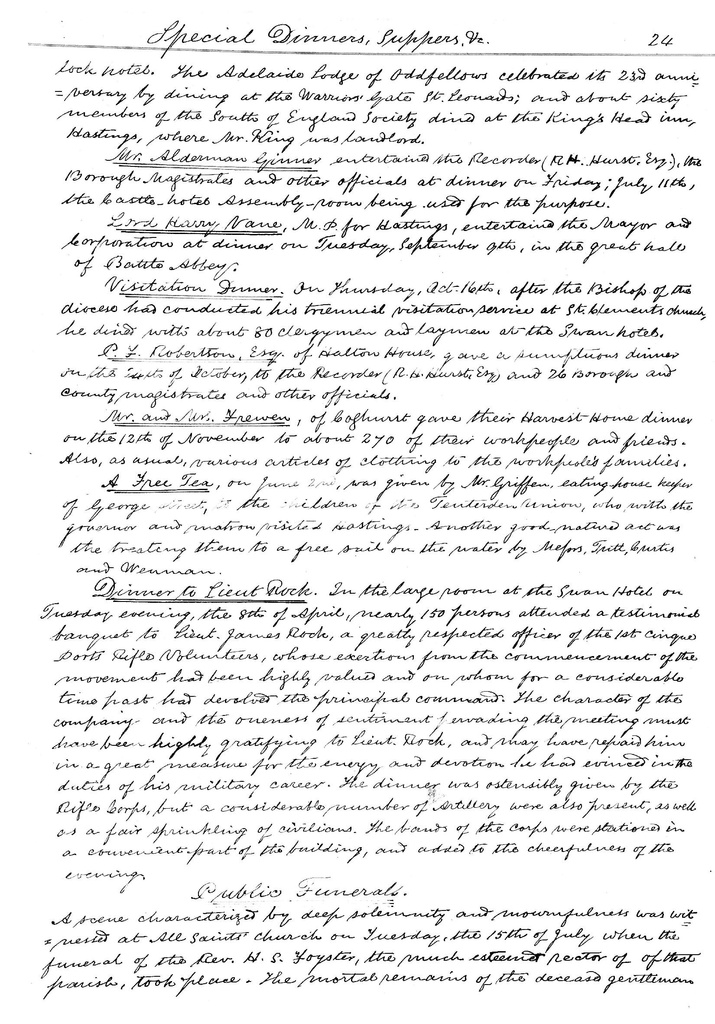 Special Dinners, Suppers, &c. 24
tock hotel. The Adelaide Lodge of Oddfellows celebrated its 23rd anni
=versary by dining at the Warriors' Gate St. Leonards; and about sixty
members of the South of England Society dined at the King's Head inn,
Hastings, where Mr. King was landlord.
Mr. Alderman Ginner entertained the Recorder (R.H. Hurst. Esq.), the
Borough Magistrates and other officials at dinner on Friday, July 11th,
the Castle-hotel Assembly-room being used for the purpose.
Lord Harry Vane, M.P. for Hastings, entertained the Mayor and
Corporation at dinner on Tuesday, September 9th, in the great hall
of Battle Abbey.
Visitation Dinner. On Thursday, Oct. 16th, after the Bishop of the
diocese had conducted his triennial visitation service at St. Clement's church,
he dined with about 80 clergymen and laymen at the Swan hotel.
P. F. Robertson, Esq. of Halton House, gave a sumptuous dinner
on the of October, to the Recorder (R.H. Hurst, Esq) and 26 Borough and
county magistrates and other officials.
Mr. and Mrs. Frewen, of Coghurst gave their Harvest Home dinner
on the 12th of November to about 270 of their workpeople and friends.
Also, as usual, various articles of clothing to the workpeole's families.
A Free Tea, on June 2nd, was given by Mr. Griffen, eating-house keeper
of George street, to the children of the Tenterden Union, who with the
governor and matron visited Hastings. Another good-natured act was
the treating them to a free sail on the water by Messrs. Tutt, Curtis
and Wenman.
Dinner to Lieut Rock. In the large room at the Swan Hotel on
Tuesday evening, the 8th of April, nearly 150 persons attended a testimonial
banquet to Lieut. James Rock, a greatly respected officer of the 1st Cinque
Ports Rifle Volunteers, whose exertions from the commencement of the
movement had been highly valued and on whom for a considerable
time past had devolved the principal command. The character of the
company and the oneness of sentiment pervading the meeting must
have been highly gratifying to Lieut. Rock, and may have repaid him
in a great measure for the energy and devotion he had evinced in the
duties of his military career. The dinner was ostensibly given by the
Rifle Corps, but a considerable number of Artillery were also present, as well
as a fair sprinkling of civilians. The bands of the corps were stationed in
a convenient part of the building, and added to the cheerfulness of the
evening.
Public Funerals.
A scene characterized by deep solemnity and mournfulness was wit
=nessed at All Saints' church on Tuesday, the 15th of July when the
funeral of the Rev. H. S. Foyster, the much esteemed rector of of that
parish, took place. The mortal remains of the deceased gentleman